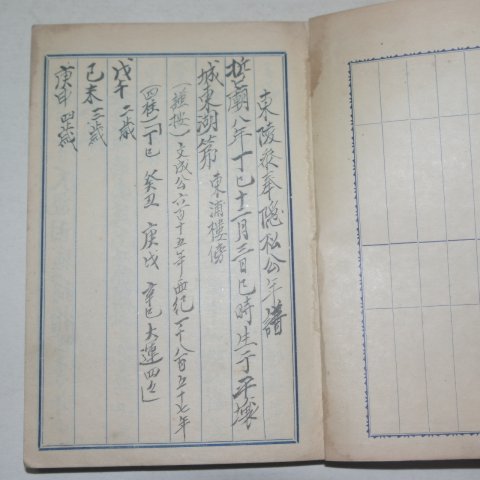 東陵參奉隱松公年譜
哲廟八年丁巳十二月三日巳時生于平壤
城東湖第 東浦樓傍
(謹按)文成公六百十五年西紀一千八百五十七年
(四柱)丁巳 癸丑 庚戌 辛巳 大運四
戊午 二歲
己未 三歲
庚申 四歲